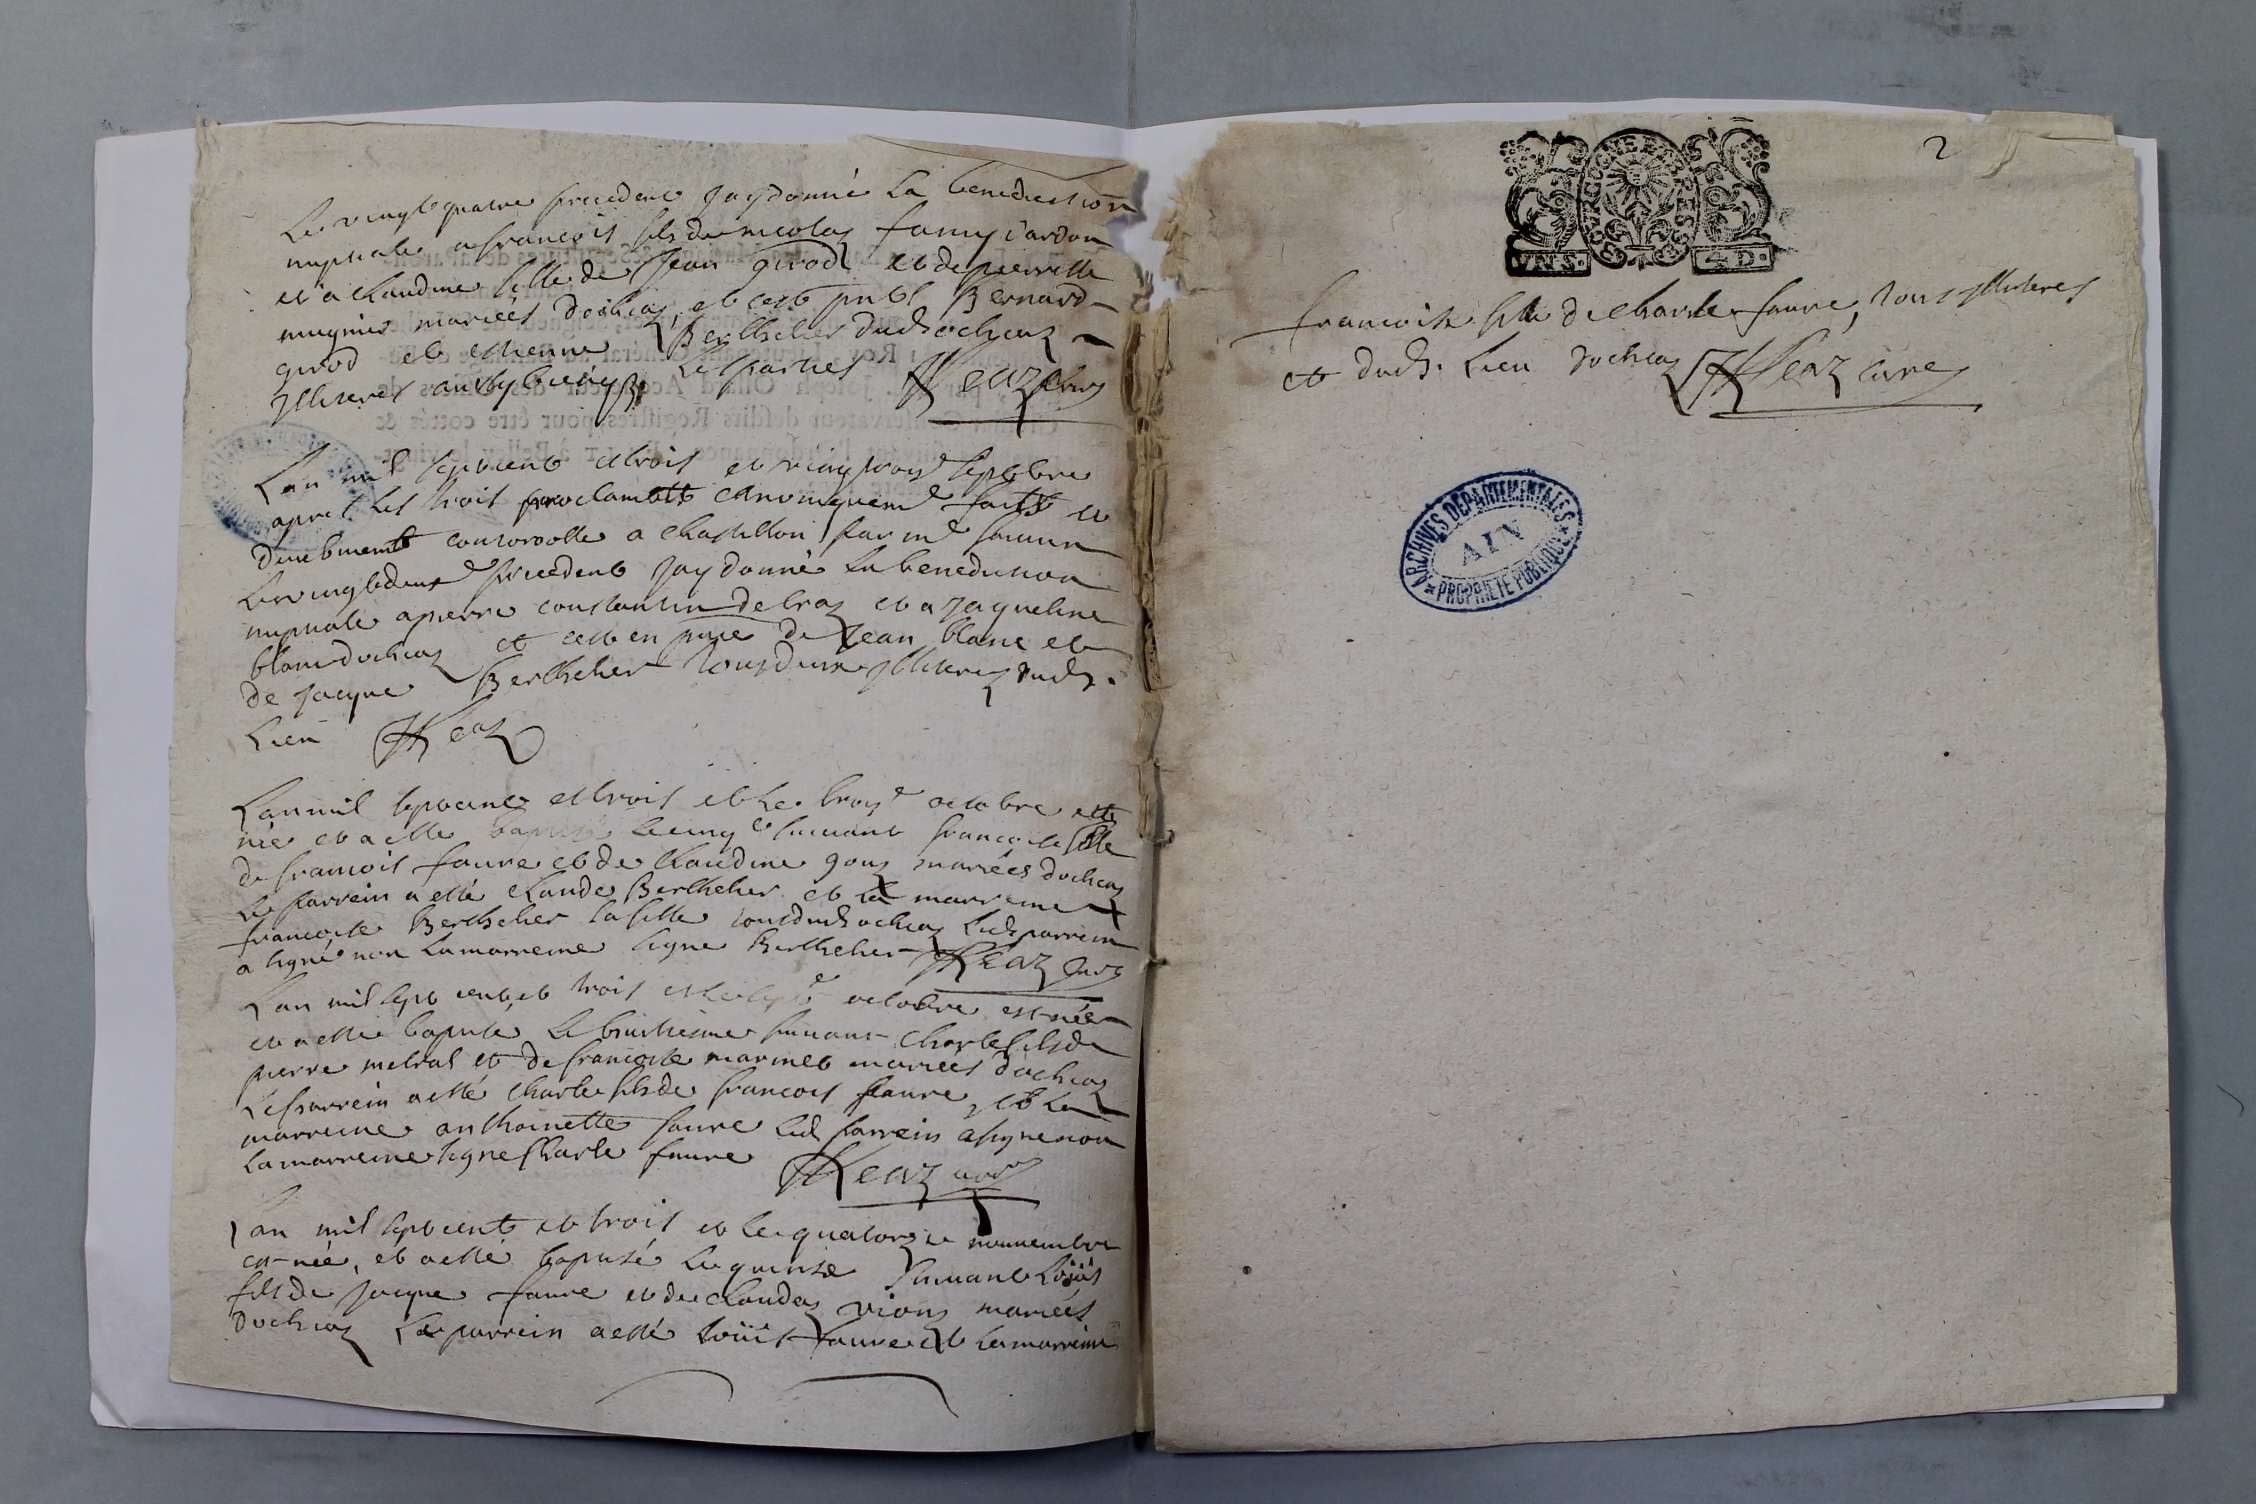 Le vingt quatre precedent Jay donné La benediction
nuptiale a francois fils de nicolas famy dardon
et a claudine fille de Jean girod et de pierrette
mugnier mariés dochiaz, et cest pnts Bernard
girod et estienne Berthelier dud ochiaz
Illiteres Les parties JKeaz Curé
Lan mil sept cent et trois et septbre
apres les trois proclamatts canoniquemt faitts et
deuebment controolle a chastillon par me
Le vingtdeux precedent Jay donné La benediction
nuptiale a pierre constantin et a Jaqueline
blanc dochiaz et cest en pnce de Jean blanc et
de Jacque Berthelier tous deux Illiteres dud.
Lieu JKeaz
Lan mil sept cent et trois et Le troise octobre est
née et a esté baptisé Le cinqe suivant francoise fille
de francois faure et de claudine gouz mariés dochiaz
Le parrein a esté claude Berthelier et la marreine
francoise Berthelier sa fille tous dud ochiaz Led parrein
a signé non La marreine signe Berthelier JKeaz Curé
Lan mil sept cent et trois et Le octobre est née
et a esté baptisé Le huictieme suivant Charle fils de
pierre metral et de francoise marinet mariés dochiaz
Le parrein a esté charle fils de francois faure et La
marreine anthoinette faure Led parrein a signe non
La marreine signe Charle faure JKeaz curé
Lan mil sept cent et trois et Le quatorze nouuembre
est née, et a esté baptisé Le quinze suiuant Loüis
fils de Jacque faure et de Claudaz vionz mariés
dochiaz Le parrein a esté Loüis faure et La marreine
2
VN S. 4 D.
francoise fille de charle faure, tous Illiteres
et dud. Lieu dochiaz JKeaz curé
ARCHIVES DEPARTEMENTALES
AIN
PROPRIETE PUBLIQUE